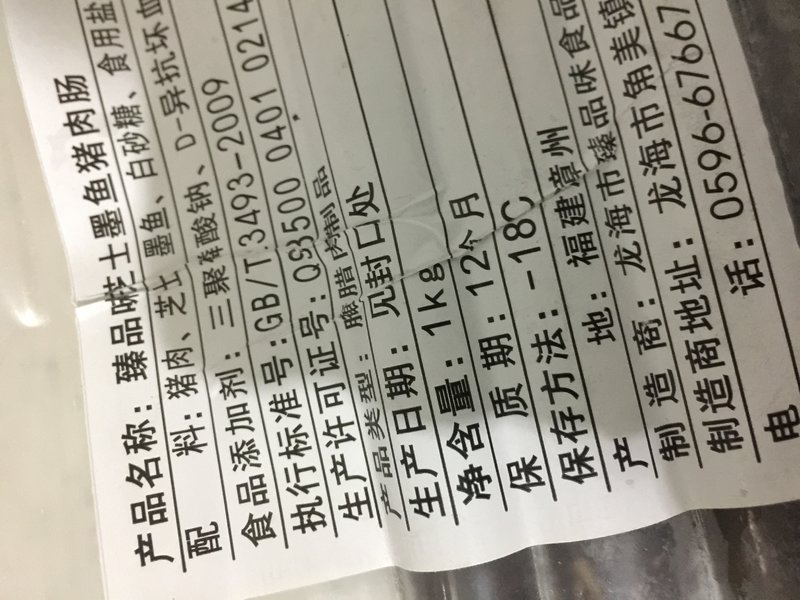 产品名称：臻品味芝士墨鱼猪肉肠
配 料：猪肉、芝士、墨鱼、白砂糖、食用盐
食品添加剂：三聚磷酸钠、D-异抗坏血
执行标准号:GB/T.3493-2009
生产许可证号：QS3500 0401 0214
产品类型：腌腊肉制品
生产日期：见封口处
净含量：1kg
保 质 期：12个月
保存方法：-18C
产 地：福建漳州
制 造 商：龙海市臻品味食品
制造商地址：龙海市角美镇
电 话：0596-67667